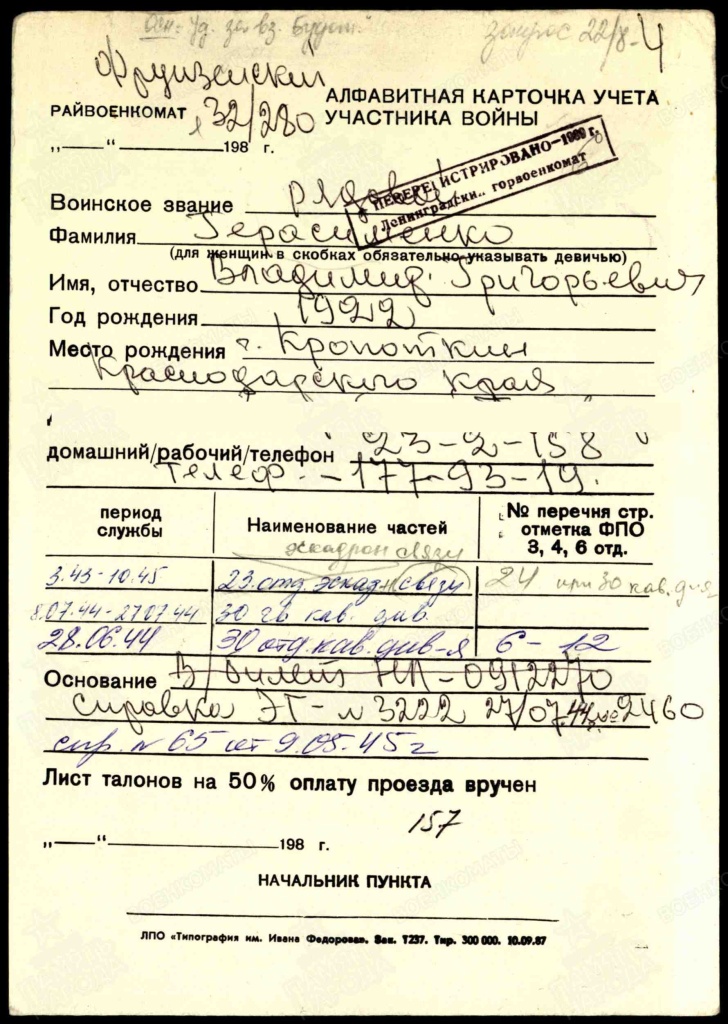 Осн: Уд. за вз. Будап."
запрос 22/8-4
Фрунзенский
РАЙВОЕНКОМАТ 32/280
АЛФАВИТНАЯ КАРТОЧКА УЧЕТА
УЧАСТНИКА ВОЙНЫ
„——“ 198 г.
ПЕРЕРЕГИСТРИРОВАНО—1989 г.
Ленинградский горвоенкомат
Воинское звание рядовой
Фамилия Герасименко
(для женщин в скобках обязательно указывать девичью)
Имя, отчество Владимир Григорьевич
Год рождения 1922
Место рождения г. Кропоткин
Краснодарского Края
домашний/рабочий/телефон 23-2-158
Телеф. - 177-93-19.
период службы
Наименование частей
№ перечня стр. отметка ФПО 3, 4, 6 отд.
эскадрон связи
3.43-10.45 23 отд. эскад-н связи 24 при 30 кав. д-я
8.07.44-27.07.44 30 гв кав. див.
28.06.44 30 отд. кав. див-я 6-12
Основание В/билет НЛ-0912270
Справка ЭГ-№ 3222 27/07.44 № 2460
спр. № 65 от 9.05.45 г
Лист талонов на 50% оплату проезда вручен
157
„——“ 198 г.
НАЧАЛЬНИК ПУНКТА
ЛПО «Типография им. Ивана Федорова». Зак. Т237. Тир. 300 000. 10.09.87